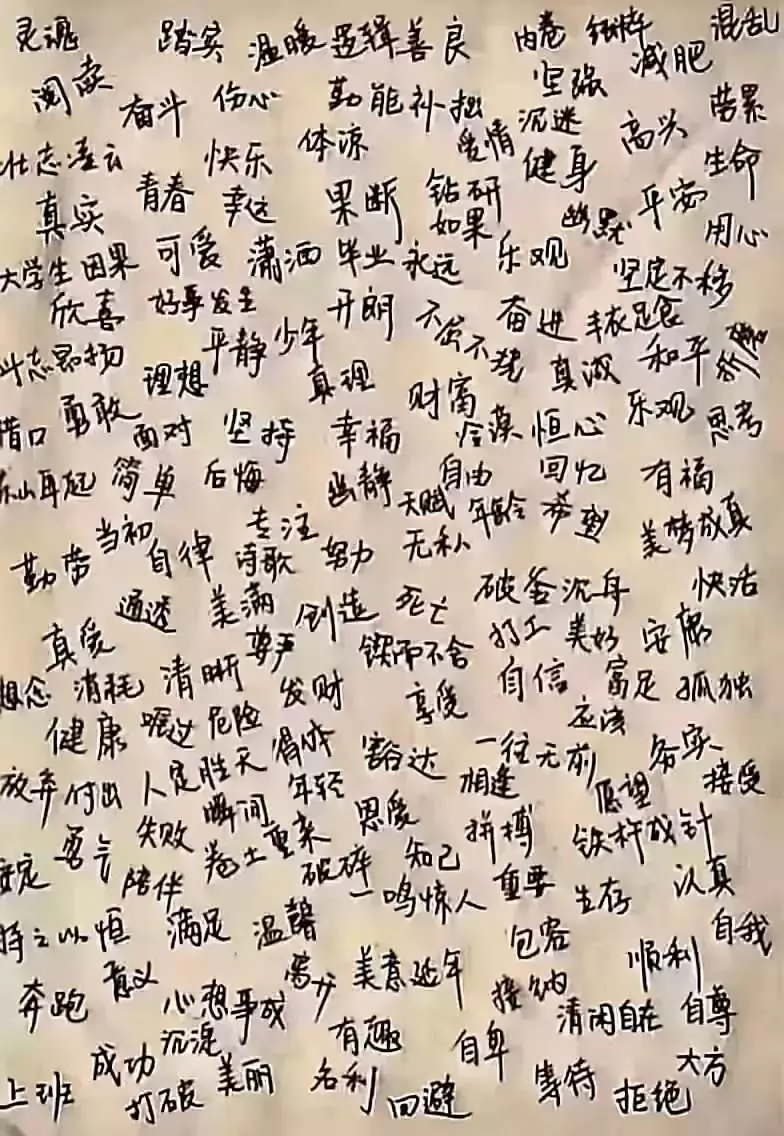 灵魂 踏实 温暖 逻辑 善良 内卷 纠结 混乱
阅读 奋斗 伤心 勤能补拙 坚强 减肥
壮志凌云 快乐 体谅 爱情 沉迷 健身 高兴 劳累
真实 青春 幸运 果断 钻研 如果 幽默 平安 生命
大学生 因果 可爱 潇洒 毕业 永远 乐观 用心
欣喜 好事发生 开朗 不屈不挠 奋进 丰衣足食 坚定不移
斗志昂扬 平静 少年 理想 真理 财富 真诚 和平
借口 勇敢 面对 坚持 幸福 冷漠 恒心 乐观 思考
东山再起 简单 后悔 幽静 自由 回忆 有福
勤劳 当初 自律 专注 诗歌 努力 天赋 无私 年龄 希望 美梦成真
真爱 通透 美满 创造 死亡 破釜沉舟 快活
想念 消耗 清晰 尊严 锲而不舍 打工 美好 安康
健康 嘱过 危险 发财 享受 自信 富足 孤独
放弃 付出 人定胜天 得体 豁达 一往无前 应该 务实
安定 勇气 失败 瞬间 年轻 恩爱 相逢 愿望 接受
陪伴 卷土重来 破碎 知己 拼搏 铁杵成针
持之以恒 满足 温馨 一鸣惊人 重要 生存 认真
奔跑 意义 心想事成 离别 美意延年 包容 接纳 顺利 自我
上班 成功 沉淀 有趣 自卑 清闲自在 自尊
打破 美丽 名利 回避 等待 拒绝 大方